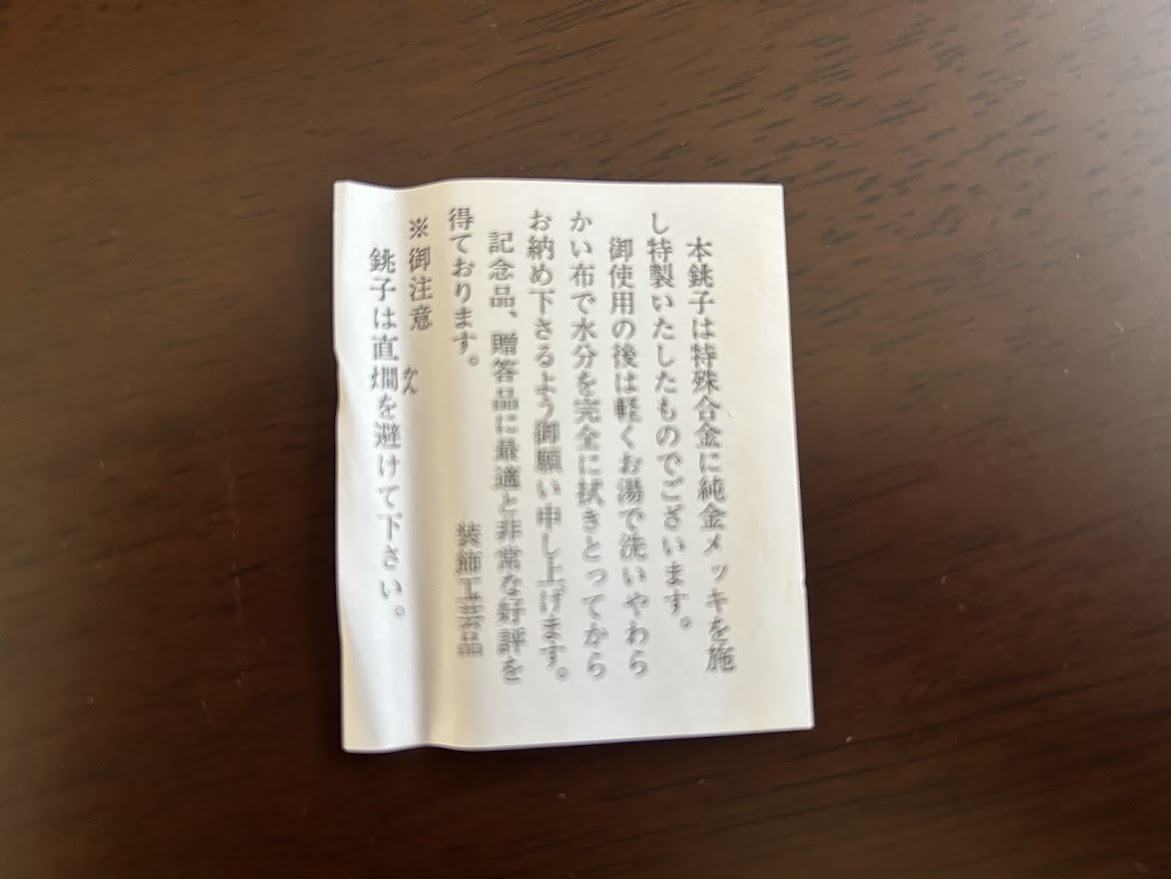 本銚子は特殊合金に純金メッキを施
し特製いたしたものでございます。
御使用の後は軽くお湯で洗いやわら
かい布で水分を完全に拭きとってから
お納め下さるよう御願い申し上げます。
記念品、贈答品に最適と非常な好評を
得ております。
装飾工芸品
※御注意
銚子は直燗を避けて下さい。
かん